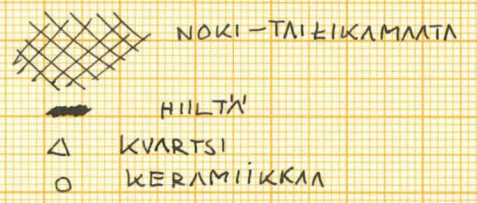 NOKI-TAI LIKAMAATA
HIILTÄ
KVARTSI
KERAMIIKKAA